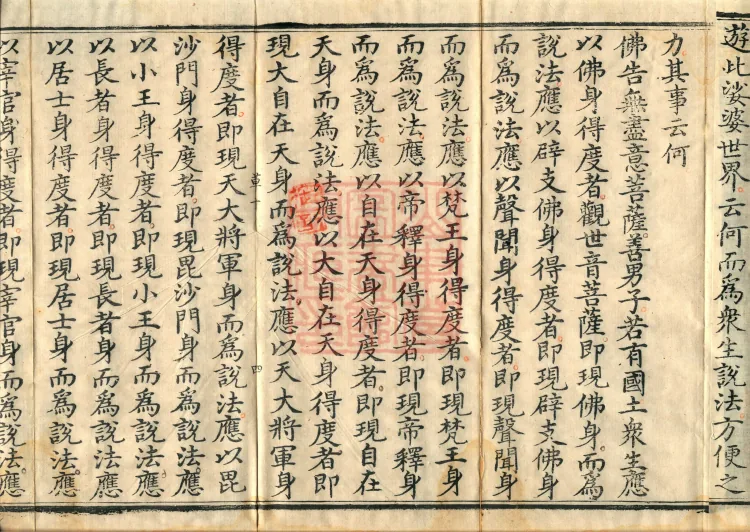 遊此娑婆世界云何而爲衆生說法方便之
力其事云何
佛告無盡意菩薩善男子若有國土衆生應
以佛身得度者觀世音菩薩即現佛身而爲
說法應以辟支佛身得度者即現辟支佛身
而爲說法應以聲聞身得度者即現聲聞身
而爲說法應以梵王身得度者即現梵王身
而爲說法應以帝釋身得度者即現帝釋身
而爲說法應以自在天身得度者即現自在
天身而爲說法應以大自在天身得度者即
現大自在天身而爲說法應以天大將軍身
章一 四
得度者即現天大將軍身而爲說法應以毘
沙門身得度者即現毘沙門身而爲說法應
以小王身得度者即現小王身而爲說法應
以長者身得度者即現長者身而爲說法應
以居士身得度者即現居士身而爲說法應
以宰官身得度者即現宰官身而爲說法應